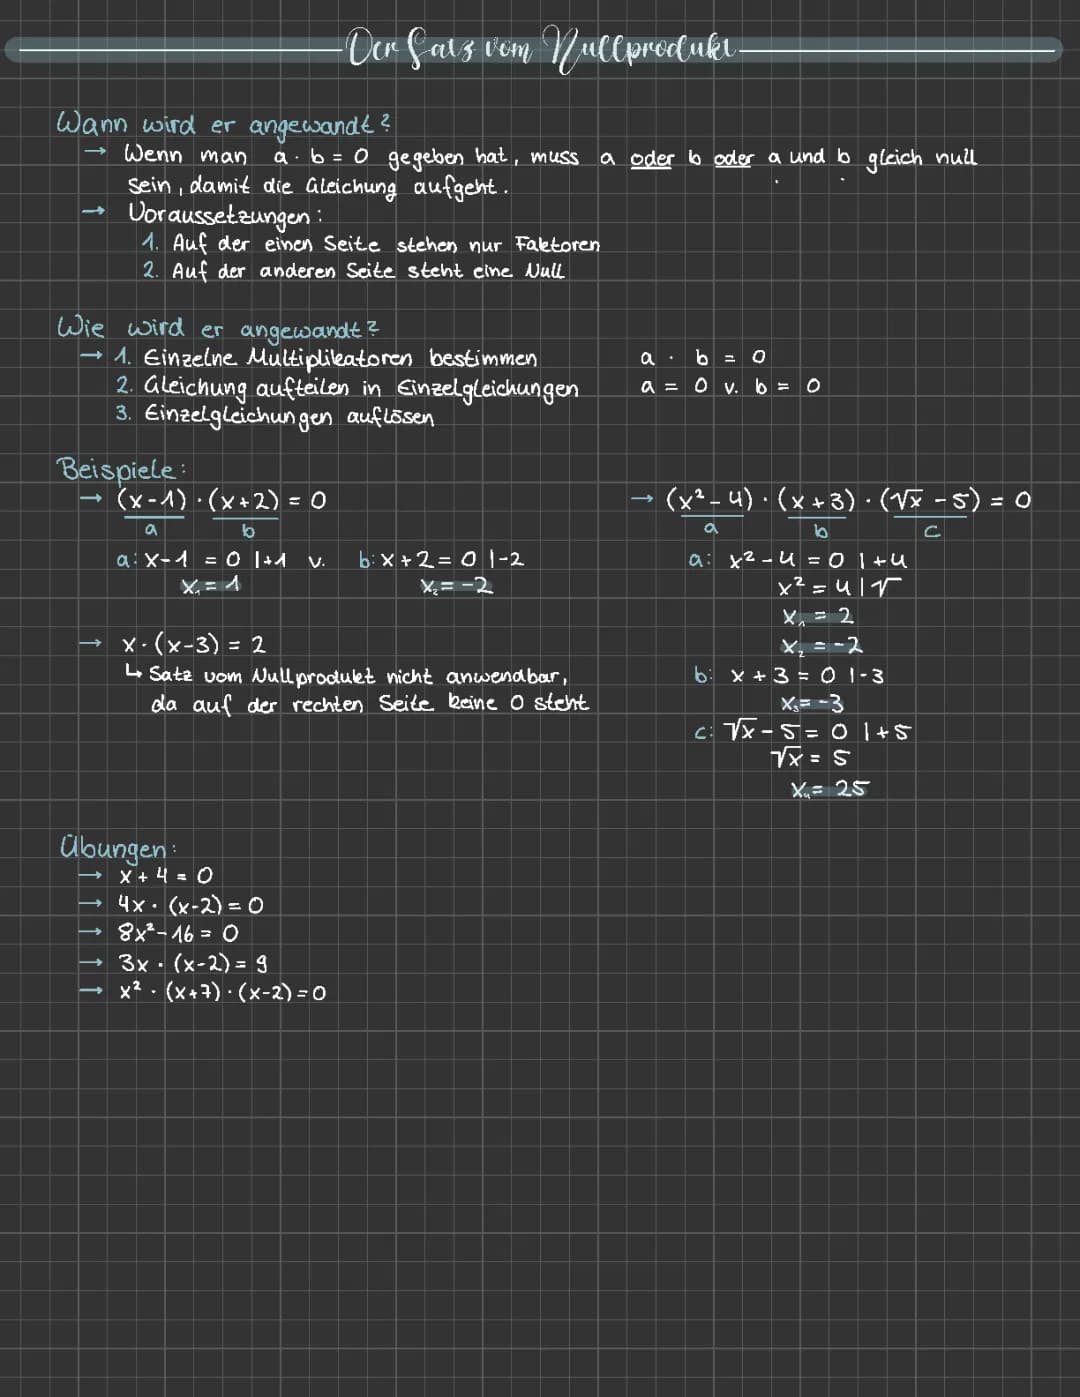 Der Satz vom Nullprodukt
Wann wird er angewandt?
→ Wenn man a · b = 0 gegeben hat, muss a oder b oder a und b gleich null
sein, damit die Gleichung aufgeht.
→ Voraussetzungen:
1. Auf der einen Seite stehen nur Faktoren
2. Auf der anderen Seite steht eine Null
Wie wird er angewandt?
→ 1. Einzelne Multiplikatoren bestimmen
2. Gleichung aufteilen in Einzelgleichungen
3. Einzelgleichungen auflösen
a · b = 0
a = 0 v. b = 0
Beispiele:
→ (x-1) · (x+2) = 0
a b
a: x-1 = 0 |+1 v. b: x+2 = 0 |-2
x₁ = 1 x₂ = -2
→ x · (x-3) = 2
↳ Satz vom Nullprodukt nicht anwendbar,
da auf der rechten Seite keine 0 steht
→ (x² - 4) · (x + 3) · (√x - 5) = 0
a b c
a: x² - 4 = 0 | +4
x² = 4 | √
x₁ = 2
x₂ = -2
b: x + 3 = 0 | -3
x₃ = -3
c: √x - 5 = 0 | +5
√x = 5
x₄ = 25
Übungen:
→ x + 4 = 0
→ 4x · (x-2) = 0
→ 8x² - 16 = 0
→ 3x · (x-2) = 9
→ x² · (x+7) · (x-2) = 0